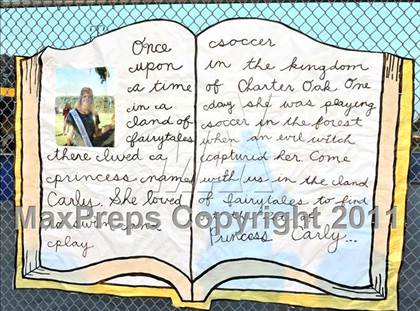 Once
upon
a time
in a
land of
fairytales
there lived a
princess name
Carly. She loved
to swim and
play
soccer
in the kingdom
of Charter Oak. One
day she was playing
soccer in the forest
when an evil witch
captured her. Come
with us in the land
of fairytales to find
Princess Carly...
MaxPreps Copyright 2011